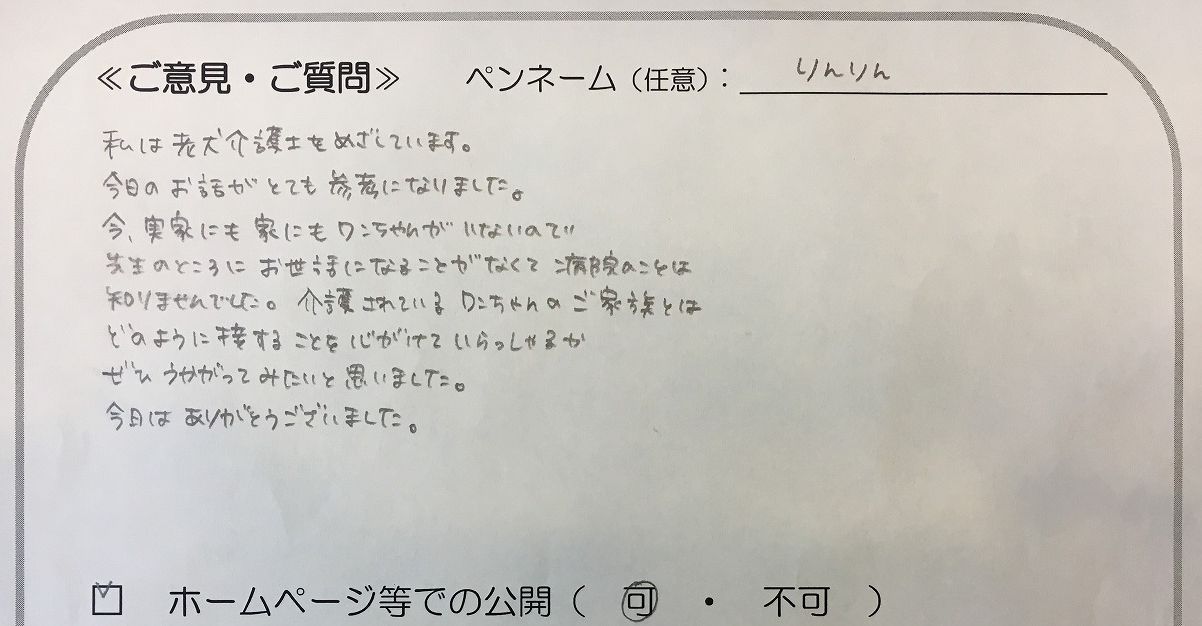 ≪ご意見・ご質問≫ ペンネーム（任意）： りんりん
私は老犬介護士をめざしています。
今日のお話がとても参考になりました。
今、実家にも家にもワンちゃんがいないので
先生のところにお世話になることがなくて病院のことは
知りませんでした。介護されているワンちゃんのご家族とは
どのように接することを心がけていらっしゃるか
ぜひうかがってみたいと思いました。
今日はありがとうございました。
☑ ホームページ等での公開（ 可 ・ 不可 ）